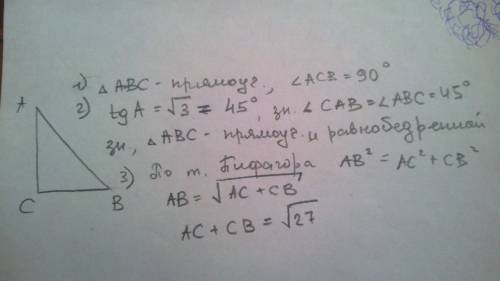 1) △ ABC - прямоуг., ∠ACB = 90°
2) tg A = √3 = 45°, зн. ∠CAB = ∠ABC = 45°
зн., △ ABC - прямоуг. и равнобедренной
3) По т. Пифагора AB² = AC² + CB²
AB = √AC + CB
AC + CB = √27
A
C
B